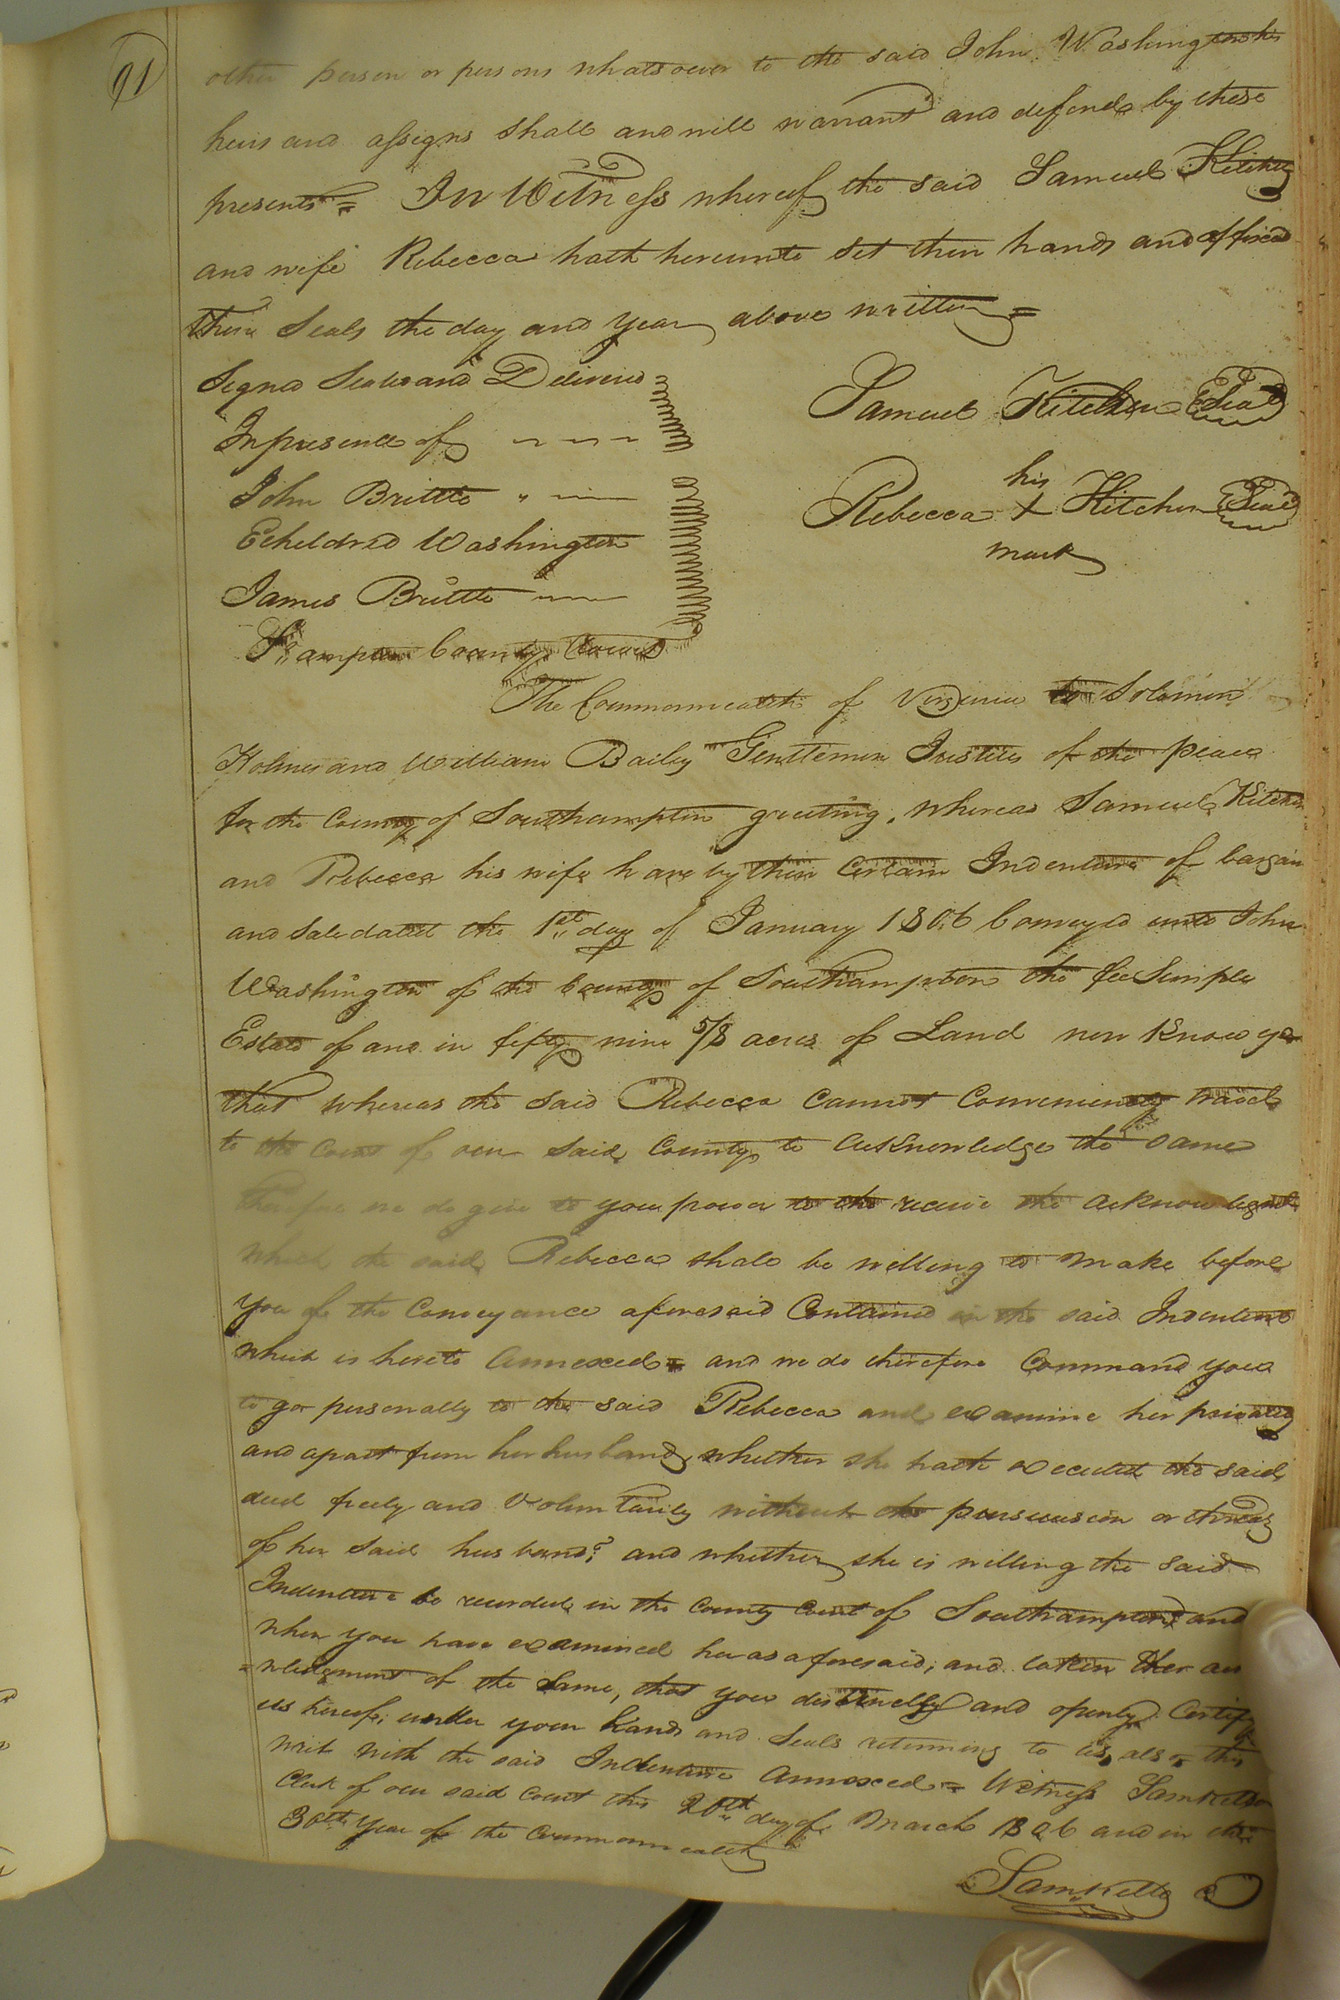 91
other person or persons whatsoever to the said John Washington his
heirs and assigns shall and will warrant and defend by these
presents = In Witness whereof the said Samuel Kitchen
and wife Rebecca hath hereunto set their hands and affixed
their Seals the day and year above written =
Signed Seales and Delivered
In presence of
John Brittle
Etheldred Washington
James Brittle
Samuel Kitchen Seal
his
Rebecca X Kitchen Seal
mark
County Court
The Commonwealth of Virginia to Solomon
Holmes and William Bailey Gentlemen Justices of the peace
for the County of Southampton greeting, whereas Samuel Kitchen
and Rebecca his wife have by their certain Indenture of bargain
and sale dated the 1st day of January 1806 Conveyed unto John
Washington of the County of Southampton the fee Simple
Estate of and in fifty nine 5/8 acres of Land now Know ye
that whereas the said Rebecca cannot Conveniently travel
to the Court of our said County to acknowledge the same
therefore we do give to you power to the receive the acknowledgmt
which the said Rebecca shall be willing to make before
you of the Conveyance aforesaid Contained in the said Indenture
which is hereto annexed = and we do therefore Command you
to go personally to the said Rebecca and examine her privately
and apart from her husband, whether she hath executed the said
deed freely and voluntarily without the persuasion or threats
of her said husband? and whether she is willing the said
Indenture be recorded in the County Court of Southampton? and
when you have examined her as aforesaid, and taken her ack
=nowledgment of the same, that you distinctly and openly Certify
us hereof, under your hands and Seals returning to us, also this
writ with the said Indenture annexed = Witness Sam Kello
Clerk of our said Court this 20th day of March 1806 and in the
30th year of the Commonwealth
Sam Kello C